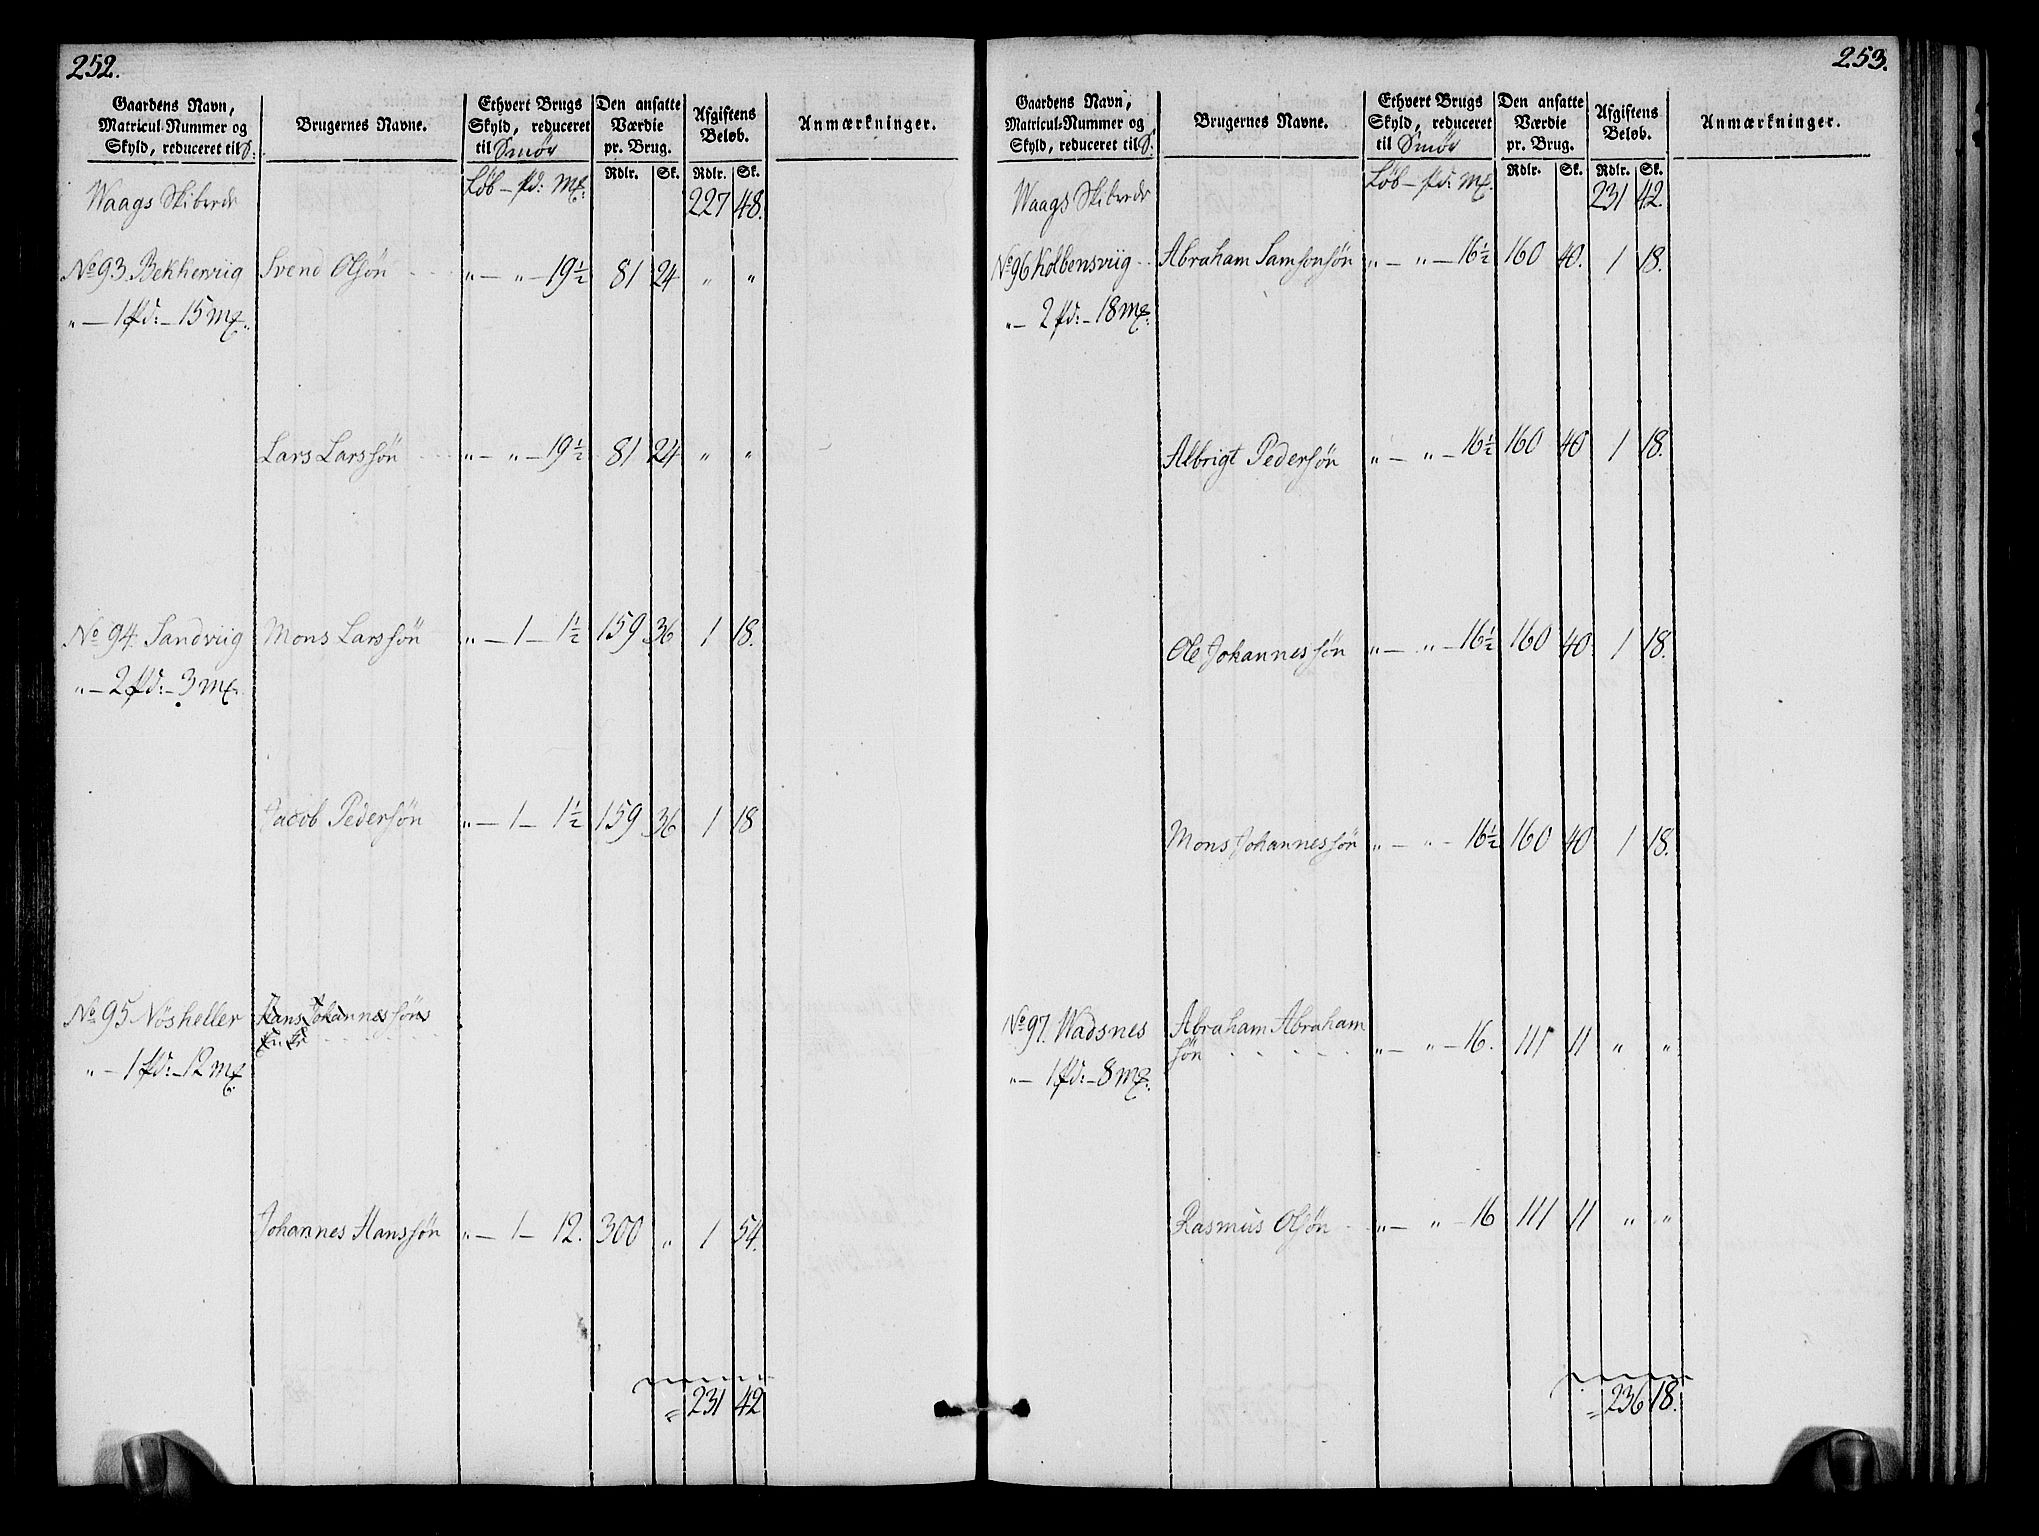 252.
Gaardens Navn, Matricul-Nummer og Skyld, reduceret til S:
Brugernes Navne.
Ethvert Brugs Skyld, reduceret til Smør
Den ansatte Værdie pr. Brug.
Afgiftens Beløb.
Anmærkninger.
Løb – pd: mk: Rdlr. Sk. Rdlr. Sk.
Waags Skibrede 227 48.
No 93 Bekkeviig Svend Olsøn „ – „ – 19½ 81 24 „ „
„ – 1 pd: – 15 mk:
Lars Larssøn „ – „ – 19½ 81 24 „ „
No 94. Sandviig Mons Larssøn „ – 1 – 1½ 159 36 1 18.
„ – 2 pd: – 3 mk:
Jacob Pedersøn „ – 1 – 1½ 159 36 1 18
No 95. Nösheller Hans Johannessøns
Enke
„ – 1 pd: – 12 mk
Johannes Hanssøn „ – 1 – 12. 300 „ 1 54.
= 231 42
253.
Gaardens Navn, Matricul-Nummer og Skyld, reduceret til S.
Brugernes Navne.
Ethvert Brugs Skyld, reduceret til Smör
Den ansatte Værdie pr. Brug.
Afgiftens Beløb.
Anmærkninger.
Løb – pd: mk. Rdlr. Sk. Rdlr. Sk.
Waags Skibrede 231 42.
No 96 Kolbensviig Abraham Samsonsøn „ – „ – 16½ 160 40. 1 18.
„ – 2 pd: – 18 mk:
Albrigt Pedersøn „ – „ – 16½ 160 40 1 18.
Ole Johannessøn „ – „ – 16½ 160 40 1 18.
Mons Johannessøn „ – „ – 16½ 160 40 1 18.
No 97. Wadsnes Abraham Abraham
søn „ – „ – 16. 111 11 „ „
„ – 1 pd: – 8 mk:
Rasmus Olsøn „ – „ – 16 111 11 „ „
= 236 18.